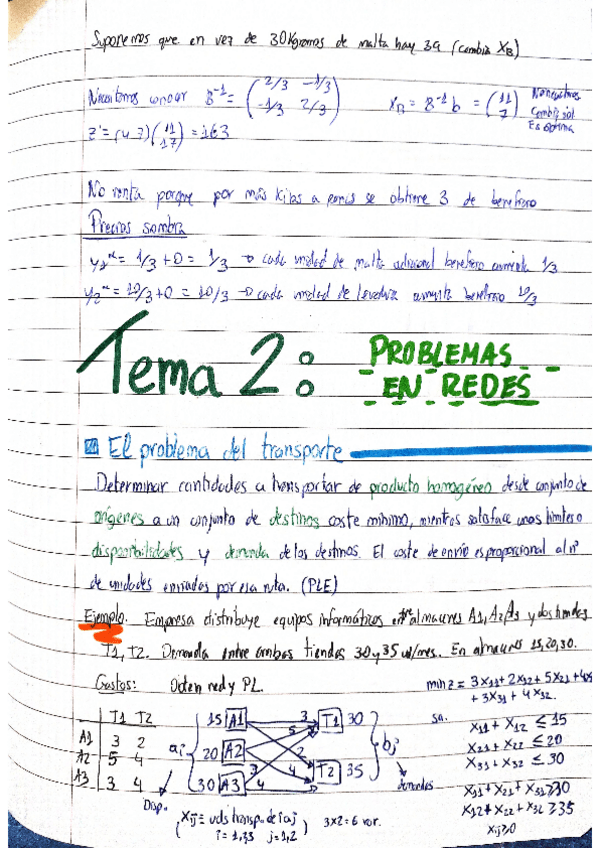 Suponemos que en vez de 30Kgramos de malta hay 39 (cambia XB)
Necesitamos conocer B⁻¹ = (2/3 -1/3 / -1/3 2/3) XB = B⁻¹ b = (11 / 7) No necesitamos
cambiar sol
Es óptima
Z = (4 7)(11 / 17) = 163
No renta porque por más kilos a penas se obtiene 3 de beneficio
Precios sombra
y1* = 1/3 + 0 = 1/3 → cada unidad de malta adicional beneficio aumenta 1/3
y2* = 10/3 + 0 = 10/3 → cada unidad de levadura aumenta beneficio 10/3
Tema 2: PROBLEMAS
EN REDES
El problema del transporte
Determinar cantidades a transportar de producto homogéneo desde conjunto de
orígenes a un conjunto de destinos coste mínimo, mientras satisface unos límites
disponibilidades y demanda de los destinos. El coste de envío es proporcional al nº
de unidades enviadas por esa ruta. (PLE)
Ejemplo. Empresa distribuye equipos informáticos entre almacenes A1, A2, A3 y dos tiendas
T1, T2. Demanda entre ambas tiendas 30 y 35 ud/mes. En almacenes 15, 20, 30.
Gastos: Obten red y PL.
min z = 3X11 + 2X12 + 5X21 + 4X22
+ 3X31 + 4X32
T1 T2
A1 3 2
A2 5 4
A3 3 4
ai
15 A1
20 A2
30 A3
3 5 2 3 4 4
T1 30
T2 35
bj
Disp.
demandas
sa.
X11 + X12 ≤ 15
X21 + X22 ≤ 20
X31 + X32 ≤ 30
X11 + X21 + X31 ≥ 30
X12 + X22 + X32 ≥ 35
Xij ≥ 0
(Xij = uds transp. de i a j) 3x2 = 6 var.
j=1,2